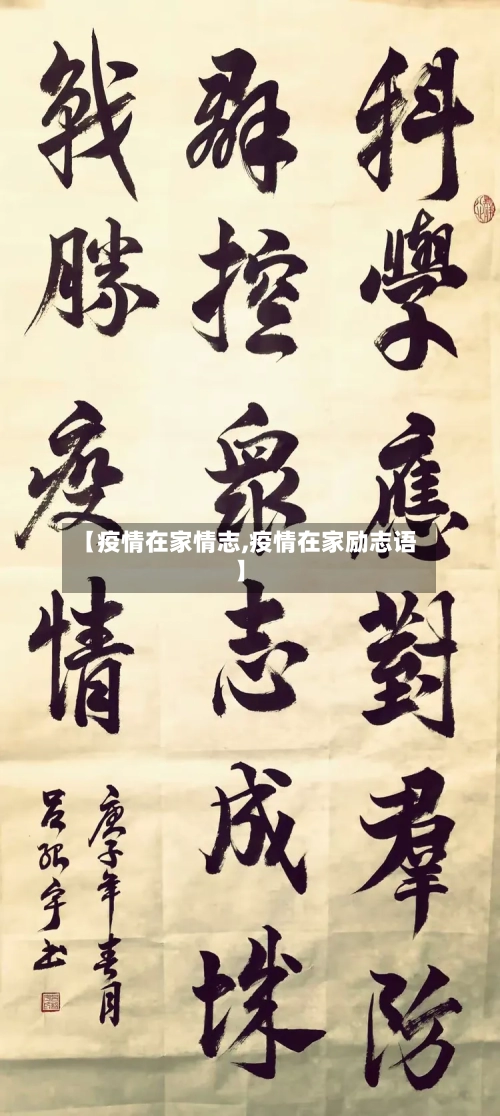 科學應對羣防
群控衆志成城
戰勝疫情
庚子年春月
【疫情在家情志,疫情在家励志语
】